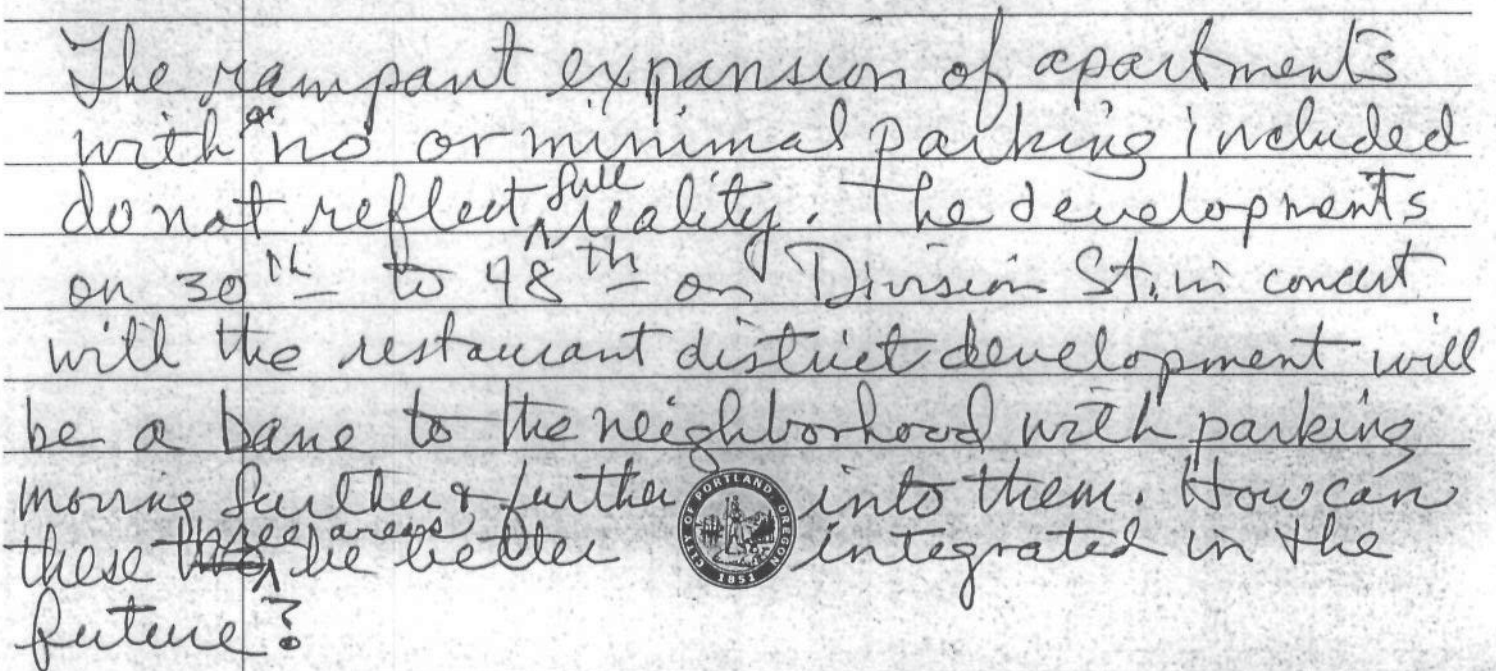 The rampant expansion of apartments
with or no or minimal parking included
do not reflect full reality. The developments
on 30th to 48th on Division St. in concert
with the restaurant district development will
be a bane to the neighborhood with parking
moving further & further into them. How can
these three areas be better integrated in the
future?
CITY OF PORTLAND, OREGON
1851